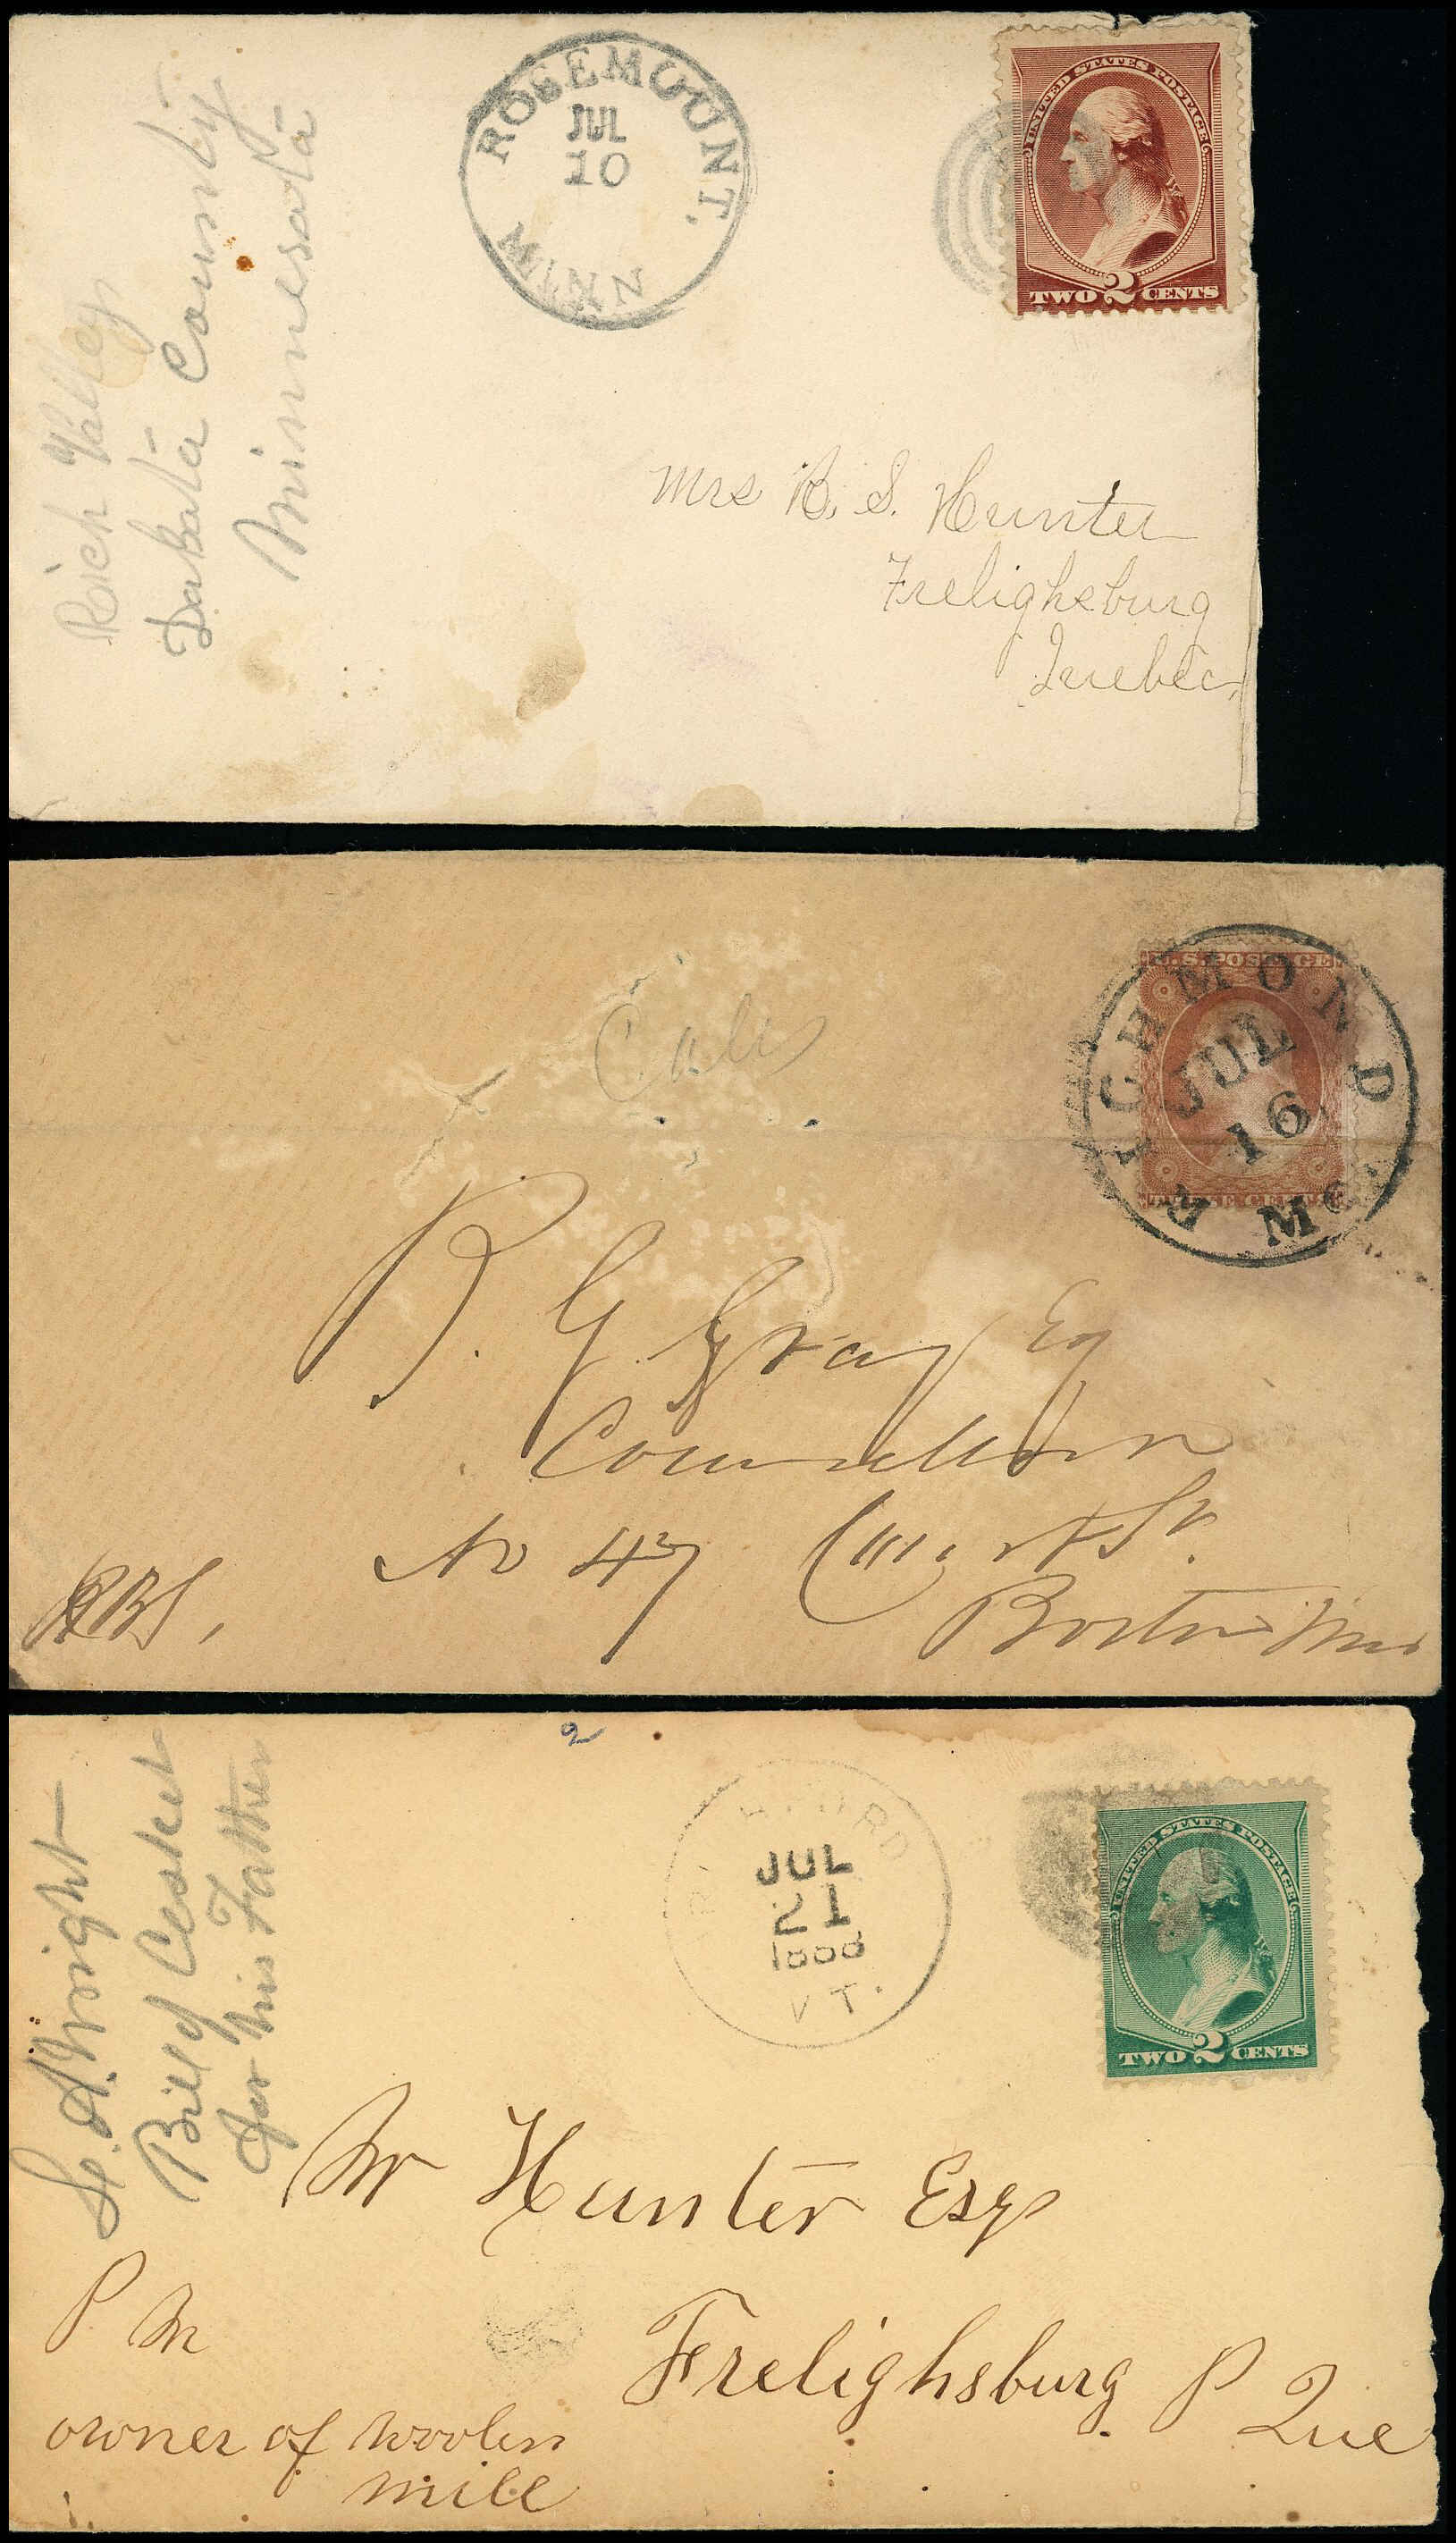 ROSEMOUNT.
JUL
10
MINN
UNITED STATES POSTAGE
TWO 2 CENTS
Rich Valley
Dakota County
Minnesota
Mrs R. S. Hunter
Frelighsburg
Quebec
RICHMOND
JUL
16
Me
U.S. POSTAGE
THREE CENTS
R. G. Gray Esq
Counsellor
No 47 Court St.
Boston Mass
2
JUL
21
1888
VT.
UNITED STATES POSTAGE
TWO 2 CENTS
A. Wright
Bill of
for his Father
Mr Hunter Esq
P M
Frelighsburg P Que
owner of woolen
mill